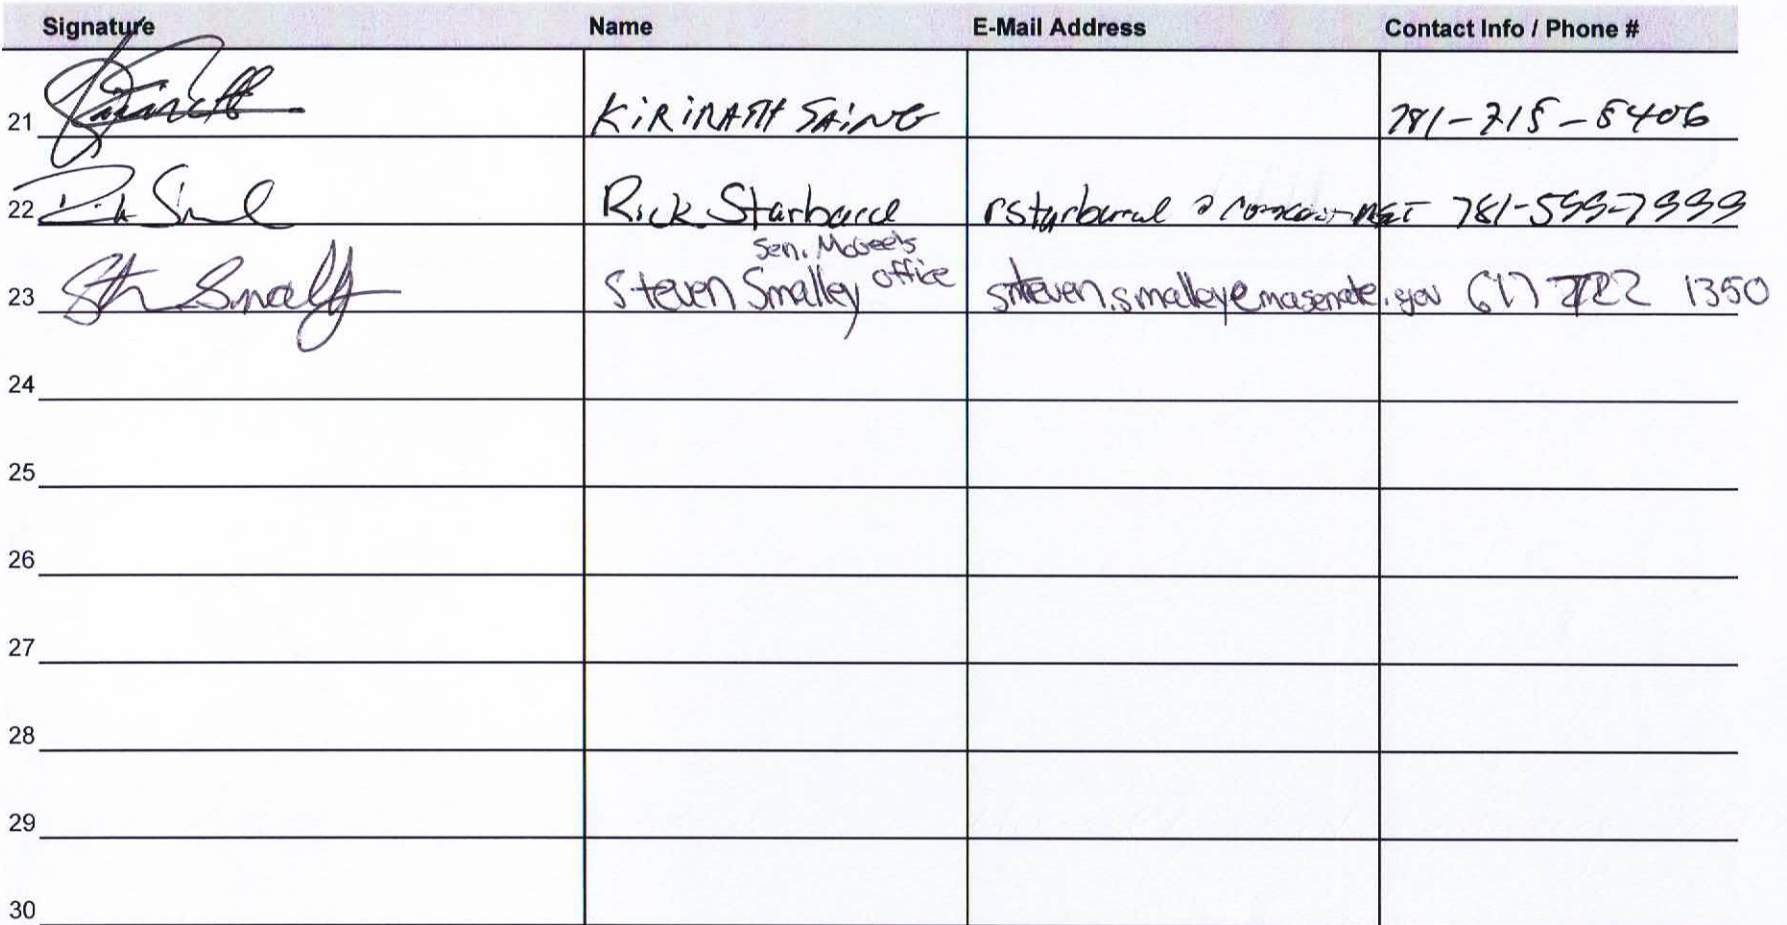 Signature Name E-Mail Address Contact Info / Phone #
21 KiRiRATH SAiNG 781-715-5406
22 Rick Starbard rstarbard @ comcast.net 781-599-7999
Sen. McGee's
23 Steven Smalley office steven.smalley@masenate.gov 617 722 1350
24
25
26
27
28
29
30